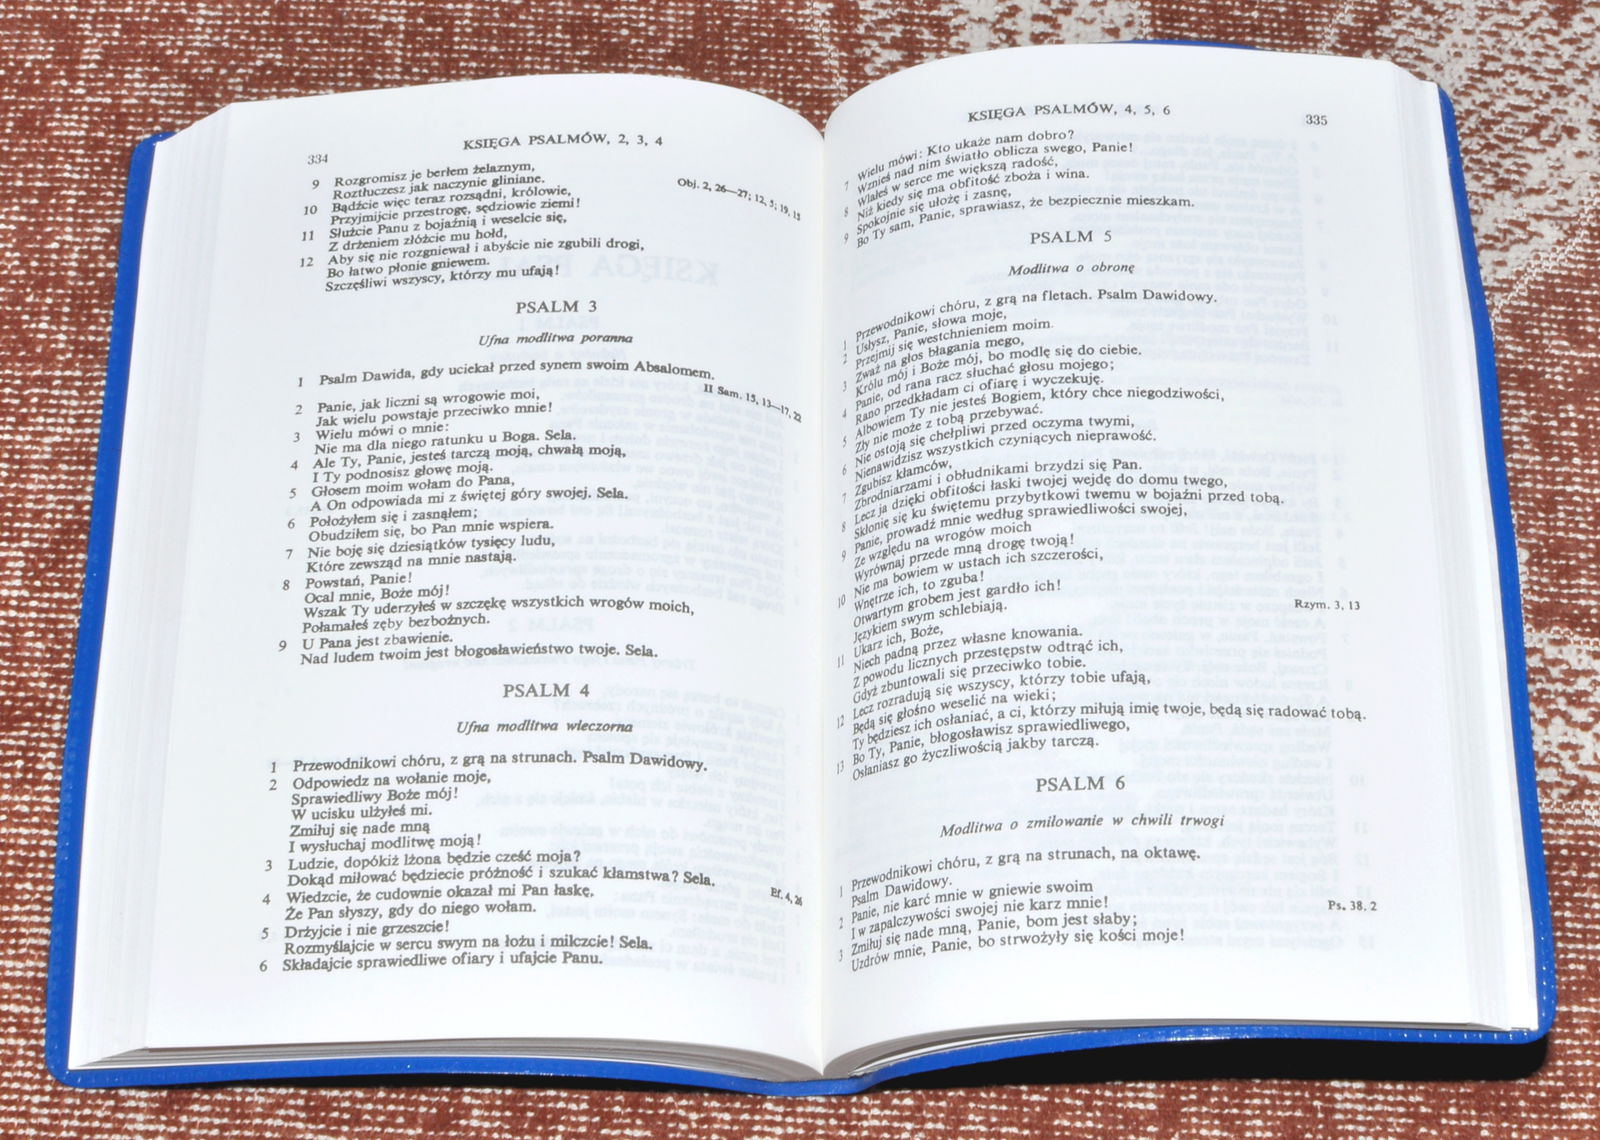 334
KSIĘGA PSALMÓW, 2, 3, 4
9 Rozgromisz je berłem żelaznym,
Roztłuczesz jak naczynie gliniane.
Obj. 2, 26—27; 12, 5; 19, 15
10 Bądźcie więc teraz rozsądni, królowie,
Przyjmijcie przestrogę, sędziowie ziemi!
11 Służcie Panu z bojaźnią i weselcie się,
Z drżeniem złóżcie mu hołd,
12 Aby się nie rozgniewał i abyście nie zgubili drogi,
Bo łatwo płonie gniewem.
Szczęśliwi wszyscy, którzy mu ufają!
PSALM 3
Ufna modlitwa poranna
1 Psalm Dawida, gdy uciekał przed synem swoim Absalomem.
II Sam. 15, 13—17, 22
2 Panie, jak liczni są wrogowie moi,
Jak wielu powstaje przeciwko mnie!
3 Wielu mówi o mnie:
Nie ma dla niego ratunku u Boga. Sela.
4 Ale Ty, Panie, jesteś tarczą moją, chwałą moją,
I Ty podnosisz głowę moją.
5 Głosem moim wołam do Pana,
A On odpowiada mi z świętej góry swojej. Sela.
6 Położyłem się i zasnąłem;
Obudziłem się, bo Pan mnie wspiera.
7 Nie boję się dziesiątków tysięcy ludu,
Które zewsząd na mnie nastają.
8 Powstań, Panie!
Ocal mnie, Boże mój!
Wszak Ty uderzyłeś w szczękę wszystkich wrogów moich,
Połamałeś zęby bezbożnych.
9 U Pana jest zbawienie.
Nad ludem twoim jest błogosławieństwo twoje. Sela.
PSALM 4
Ufna modlitwa wieczorna
1 Przewodnikowi chóru, z grą na strunach. Psalm Dawidowy.
2 Odpowiedz na wołanie moje,
Sprawiedliwy Boże mój!
W ucisku ulżyłeś mi.
Zmiłuj się nade mną
I wysłuchaj modlitwę moją!
3 Ludzie, dopókiż lżona będzie cześć moja?
Dokąd miłować będziecie próżność i szukać kłamstwa? Sela.
4 Wiedzcie, że cudownie okazał mi Pan łaskę,
Że Pan słyszy, gdy do niego wołam.
Ef. 4, 26
5 Drżyjcie i nie grzeszcie!
Rozmyślajcie w sercu swym na łożu i milczcie! Sela.
6 Składajcie sprawiedliwe ofiary i ufajcie Panu.
KSIĘGA PSALMÓW, 4, 5, 6
335
7 Wielu mówi: Kto ukaże nam dobro?
Wznieś nad nim światło oblicza swego, Panie!
8 Wlałeś w serce me większą radość,
Niż kiedy się ma obfitość zboża i wina.
9 Spokojnie się ułożę i zasnę,
Bo Ty sam, Panie, sprawiasz, że bezpiecznie mieszkam.
PSALM 5
Modlitwa o obronę
1 Przewodnikowi chóru, z grą na fletach. Psalm Dawidowy.
2 Usłysz, Panie, słowa moje,
Przejmij się westchnieniem moim.
3 Zważ na głos błagania mego,
Królu mój i Boże mój, bo modlę się do ciebie.
4 Panie, od rana racz słuchać głosu mojego;
Rano przedkładam ci ofiarę i wyczekuję.
5 Albowiem Ty nie jesteś Bogiem, który chce niegodziwości,
Zły nie może z tobą przebywać.
6 Nie ostoją się chełpliwi przed oczyma twymi,
Nienawidzisz wszystkich czyniących nieprawość.
7 Zgubisz kłamców,
Zbrodniarzami i obłudnikami brzydzi się Pan.
8 Lecz ja dzięki obfitości łaski twojej wejdę do domu twego,
Skłonię się ku świętemu przybytkowi twemu w bojaźni przed tobą.
9 Panie, prowadź mnie według sprawiedliwości swojej,
Ze względu na wrogów moich
Wyrównaj przede mną drogę twoją!
10 Nie ma bowiem w ustach ich szczerości,
Wnętrze ich, to zguba!
Otwartym grobem jest gardło ich!
Językiem swym schlebiają.
Rzym. 3, 13
11 Ukarz ich, Boże,
Niech padną przez własne knowania.
Z powodu licznych przestępstw odtrąć ich,
Gdyż zbuntowali się przeciwko tobie.
12 Lecz rozradują się wszyscy, którzy tobie ufają,
Będą się głośno weselić na wieki;
Ty będziesz ich osłaniać, a ci, którzy miłują imię twoje, będą się radować tobą.
13 Bo Ty, Panie, błogosławisz sprawiedliwego,
Osłaniasz go życzliwością jakby tarczą.
PSALM 6
Modlitwa o zmiłowanie w chwili trwogi
1 Przewodnikowi chóru, z grą na strunach, na oktawę.
Psalm Dawidowy.
2 Panie, nie karć mnie w gniewie swoim
I w zapalczywości swojej nie karz mnie!
Ps. 38, 2
3 Zmiłuj się nade mną, Panie, bom jest słaby;
Uzdrów mnie, Panie, bo strwożyły się kości moje!